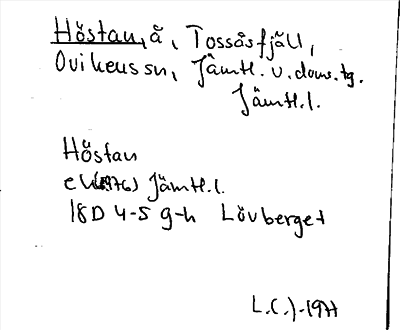 Höstan, å, Tossåsfjäll,
Ovikens sn, Jämtl. v. doms.tg.
Jämtl.l.
Höstan
ek (1976) Jämtl.l.
18D 4-5 g-h Lövberget
1977